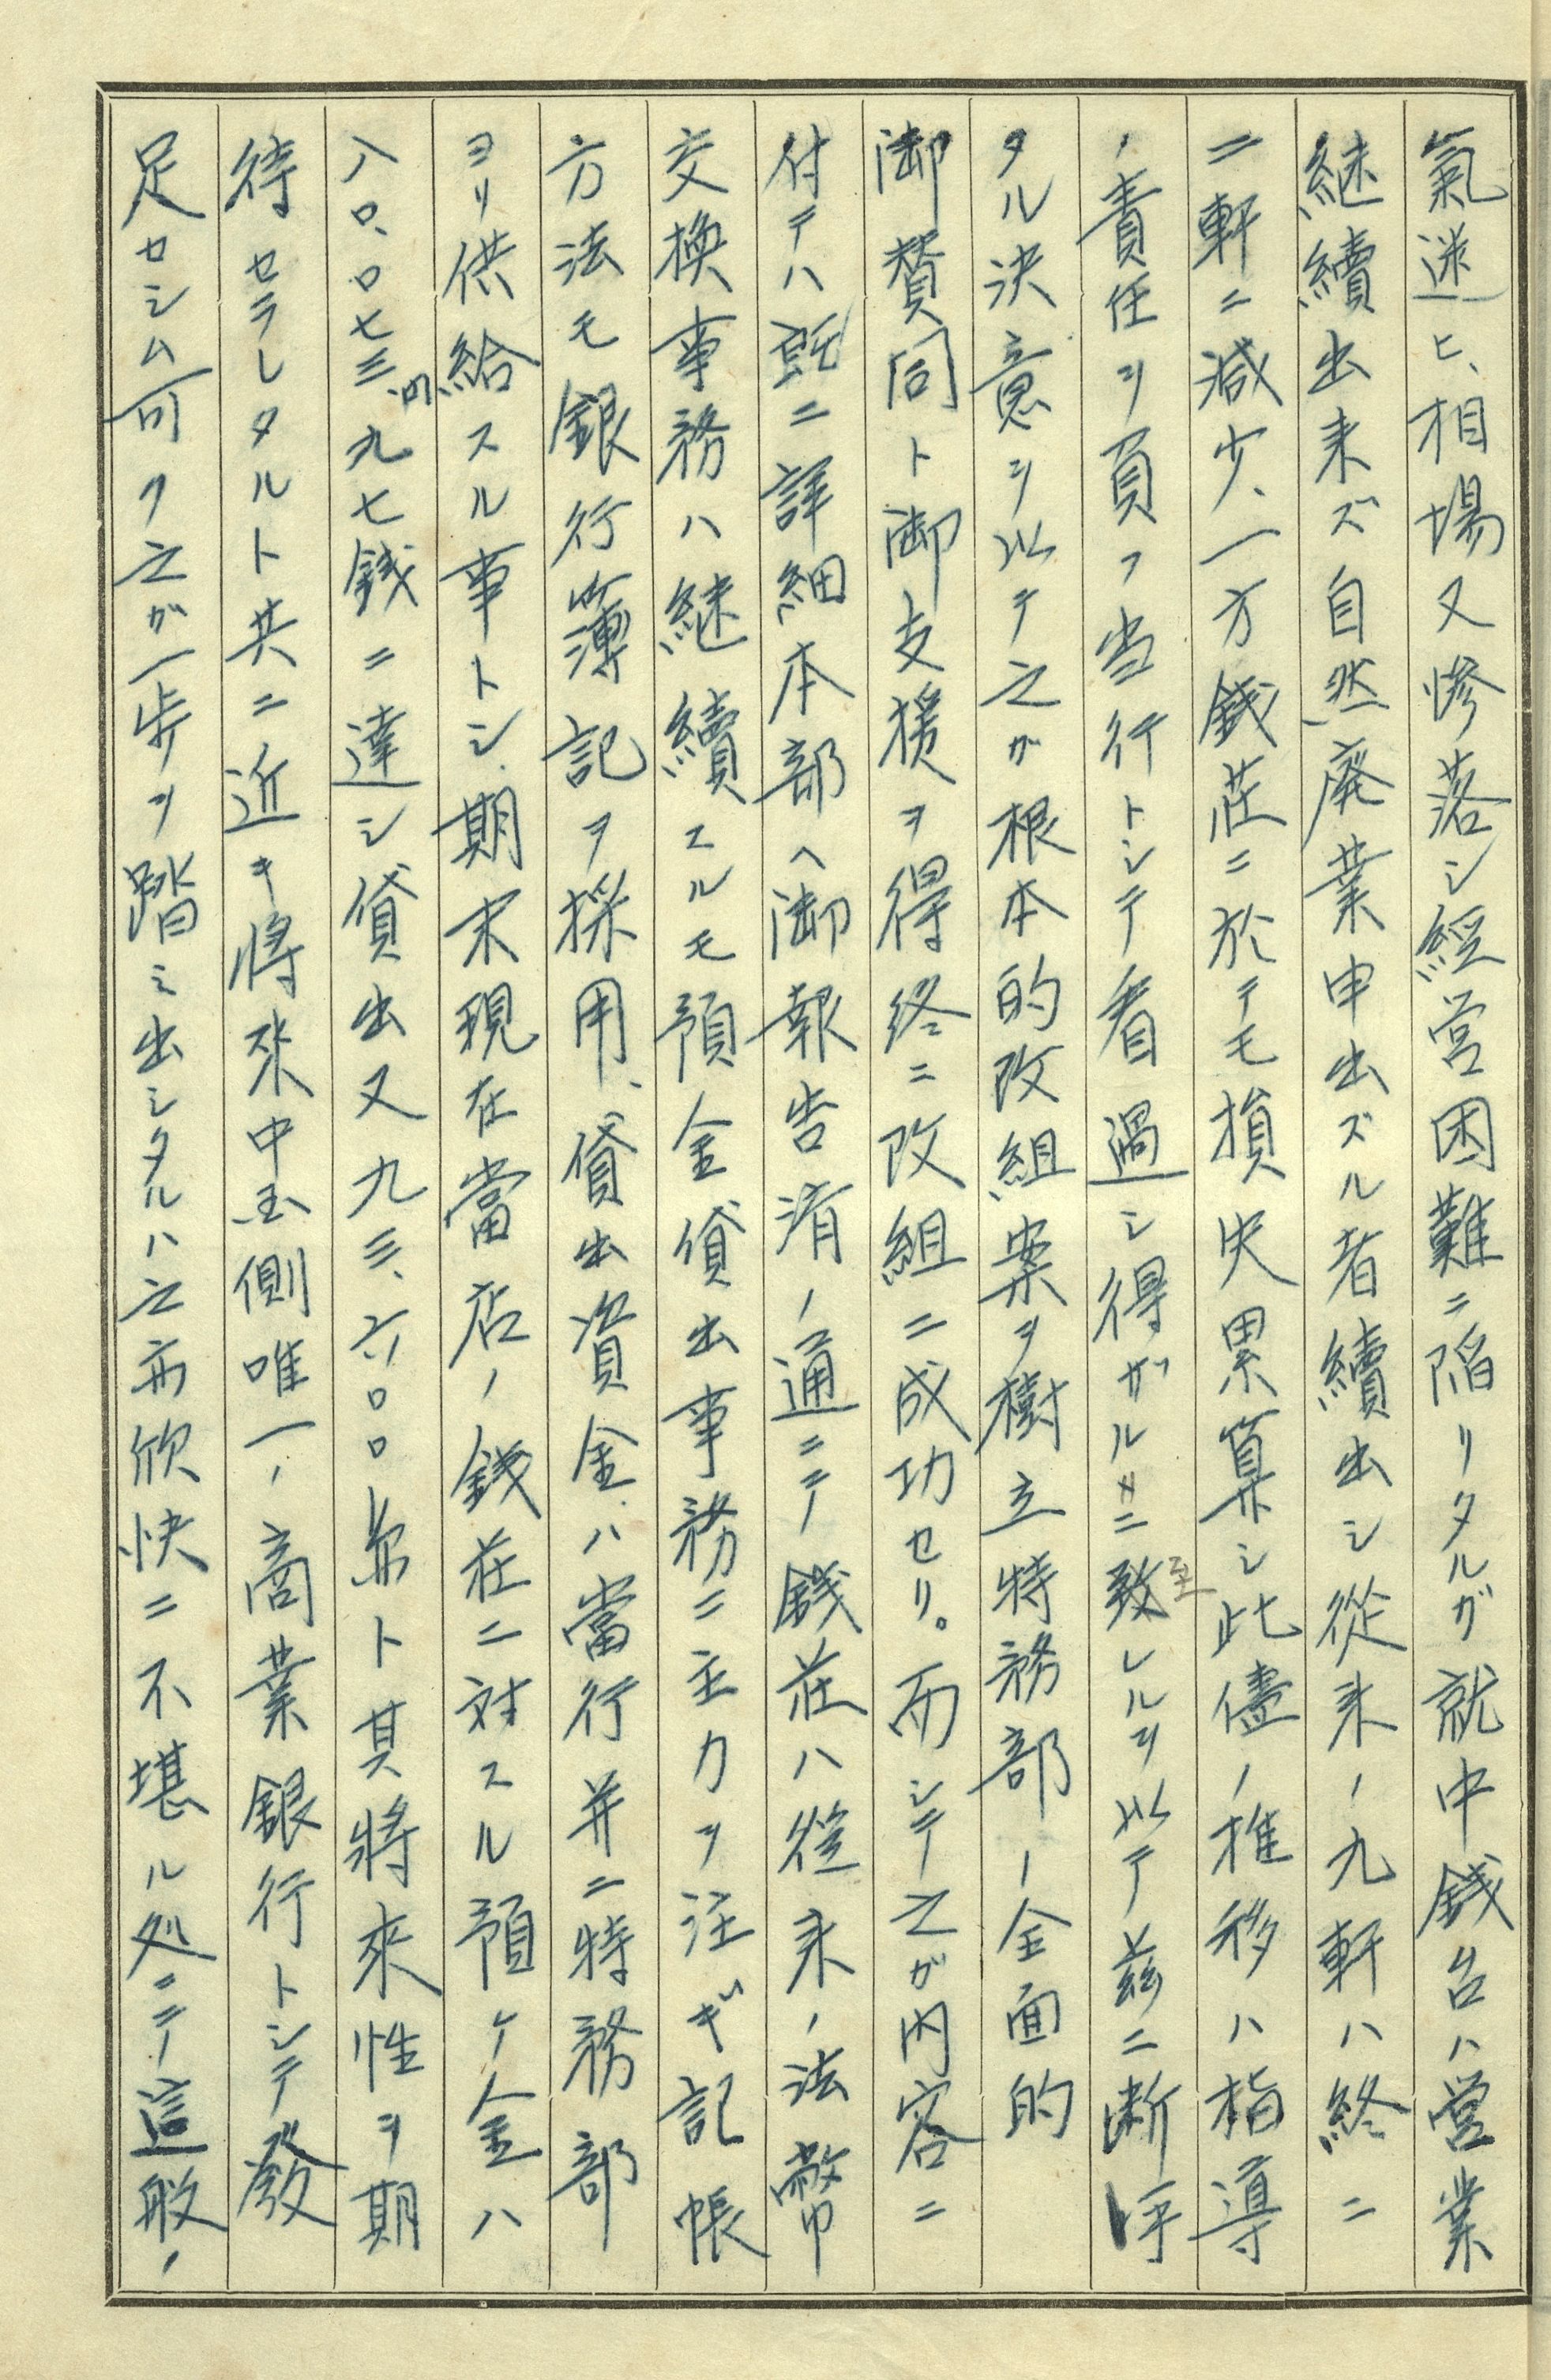 氣迷ヒ、相場又惨落シ経営困難ニ陥リタルガ就中銭台ハ営業
継續出来ズ自然廃業申出ズル者續出シ從来ノ九軒ハ終ニ
二軒ニ減少、一方銭荘ニ於テモ損失累算シ此儘ノ推移ハ指導
ノ責任ヲ負フ当行トシテ看過シ得ガルニ致至レルヲ以テ茲ニ断乎
タル決意ヲ以テ之ガ根本的改組案ヲ樹立特務部ノ全面的
御賛同ト御支援ヲ得終ニ改組ニ成功セリ。而シテ之ガ内容ニ
付テハ既ニ詳細本部ヘ御報告済ノ通ニテ銭荘ハ從来ノ法幣
交換事務ハ継續スルモ預金貸出事務ニ主力ヲ注ギ記帳
方法モ銀行簿記ヲ採用、貸出資金ハ當行并ニ特務部
ヨリ供給スル事トシ、期末現在當店ノ銭荘ニ対スル預ケ金ハ
八〇、〇七三円、九七銭ニ達シ貸出又九三、六〇〇弗ト其將來性ヲ期
待セラレタルト共ニ近キ將來中国側唯一ノ商業銀行トシテ發
足セシム可ク之ガ一歩ヲ踏ミ出シタルハ之亦欣快ニ不堪ル処ニテ這般ノ